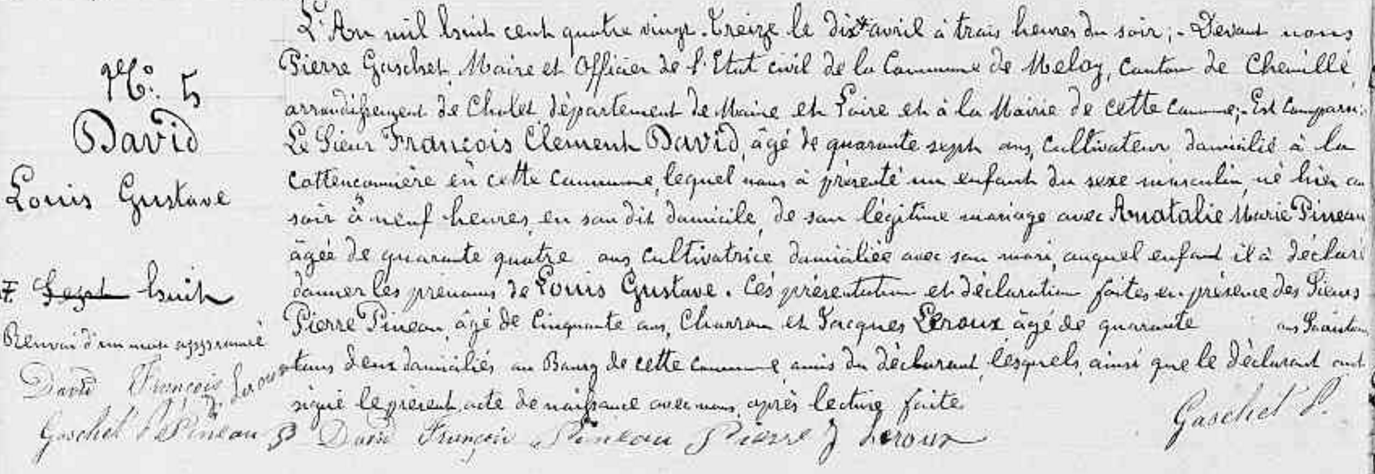 N.º 5
David
Louis Gustave
Sept huit
Renvoi d'un mot approuvé
David François Leroux
Gaschet P Pineau P
L'An mil huit cent quatre vingt-treize le dix avril à trois heures du soir; - Devant nous
Pierre Gaschet Maire et Officier de l'Etat civil de la Commune de Melay, Canton de Chemillé
arrondissement de Cholet département de Maine et Loire et à la Mairie de cette commune; - Est comparu:
Le Sieur François Clement David, âgé de quarante sept ans, Cultivateur domicilié à la
en cette commune, lequel nous à présenté un enfant du sexe masculin, né hier au
soir à neuf heures, en son dit domicile, de son légitime mariage avec Anatalie Marie Pineau
âgée de quarante quatre ans cultivatrice domiciliée avec son mari, auquel enfant il à déclaré
donner les prénoms de Louis Gustave. Ces présentation et déclaration faites en présence des Sieurs
Pierre Pineau, âgé de Cinquante ans, Charron et Jacques Leroux âgé de quarante ans
tous deux domiciliés au Bourg de cette commune amis du déclarant, lesquels ainsi que le déclarant ont
signé le présent acte de naissance avec nous, après lecture faite.
David François Pineau Pierre J Leroux
Gaschet P.